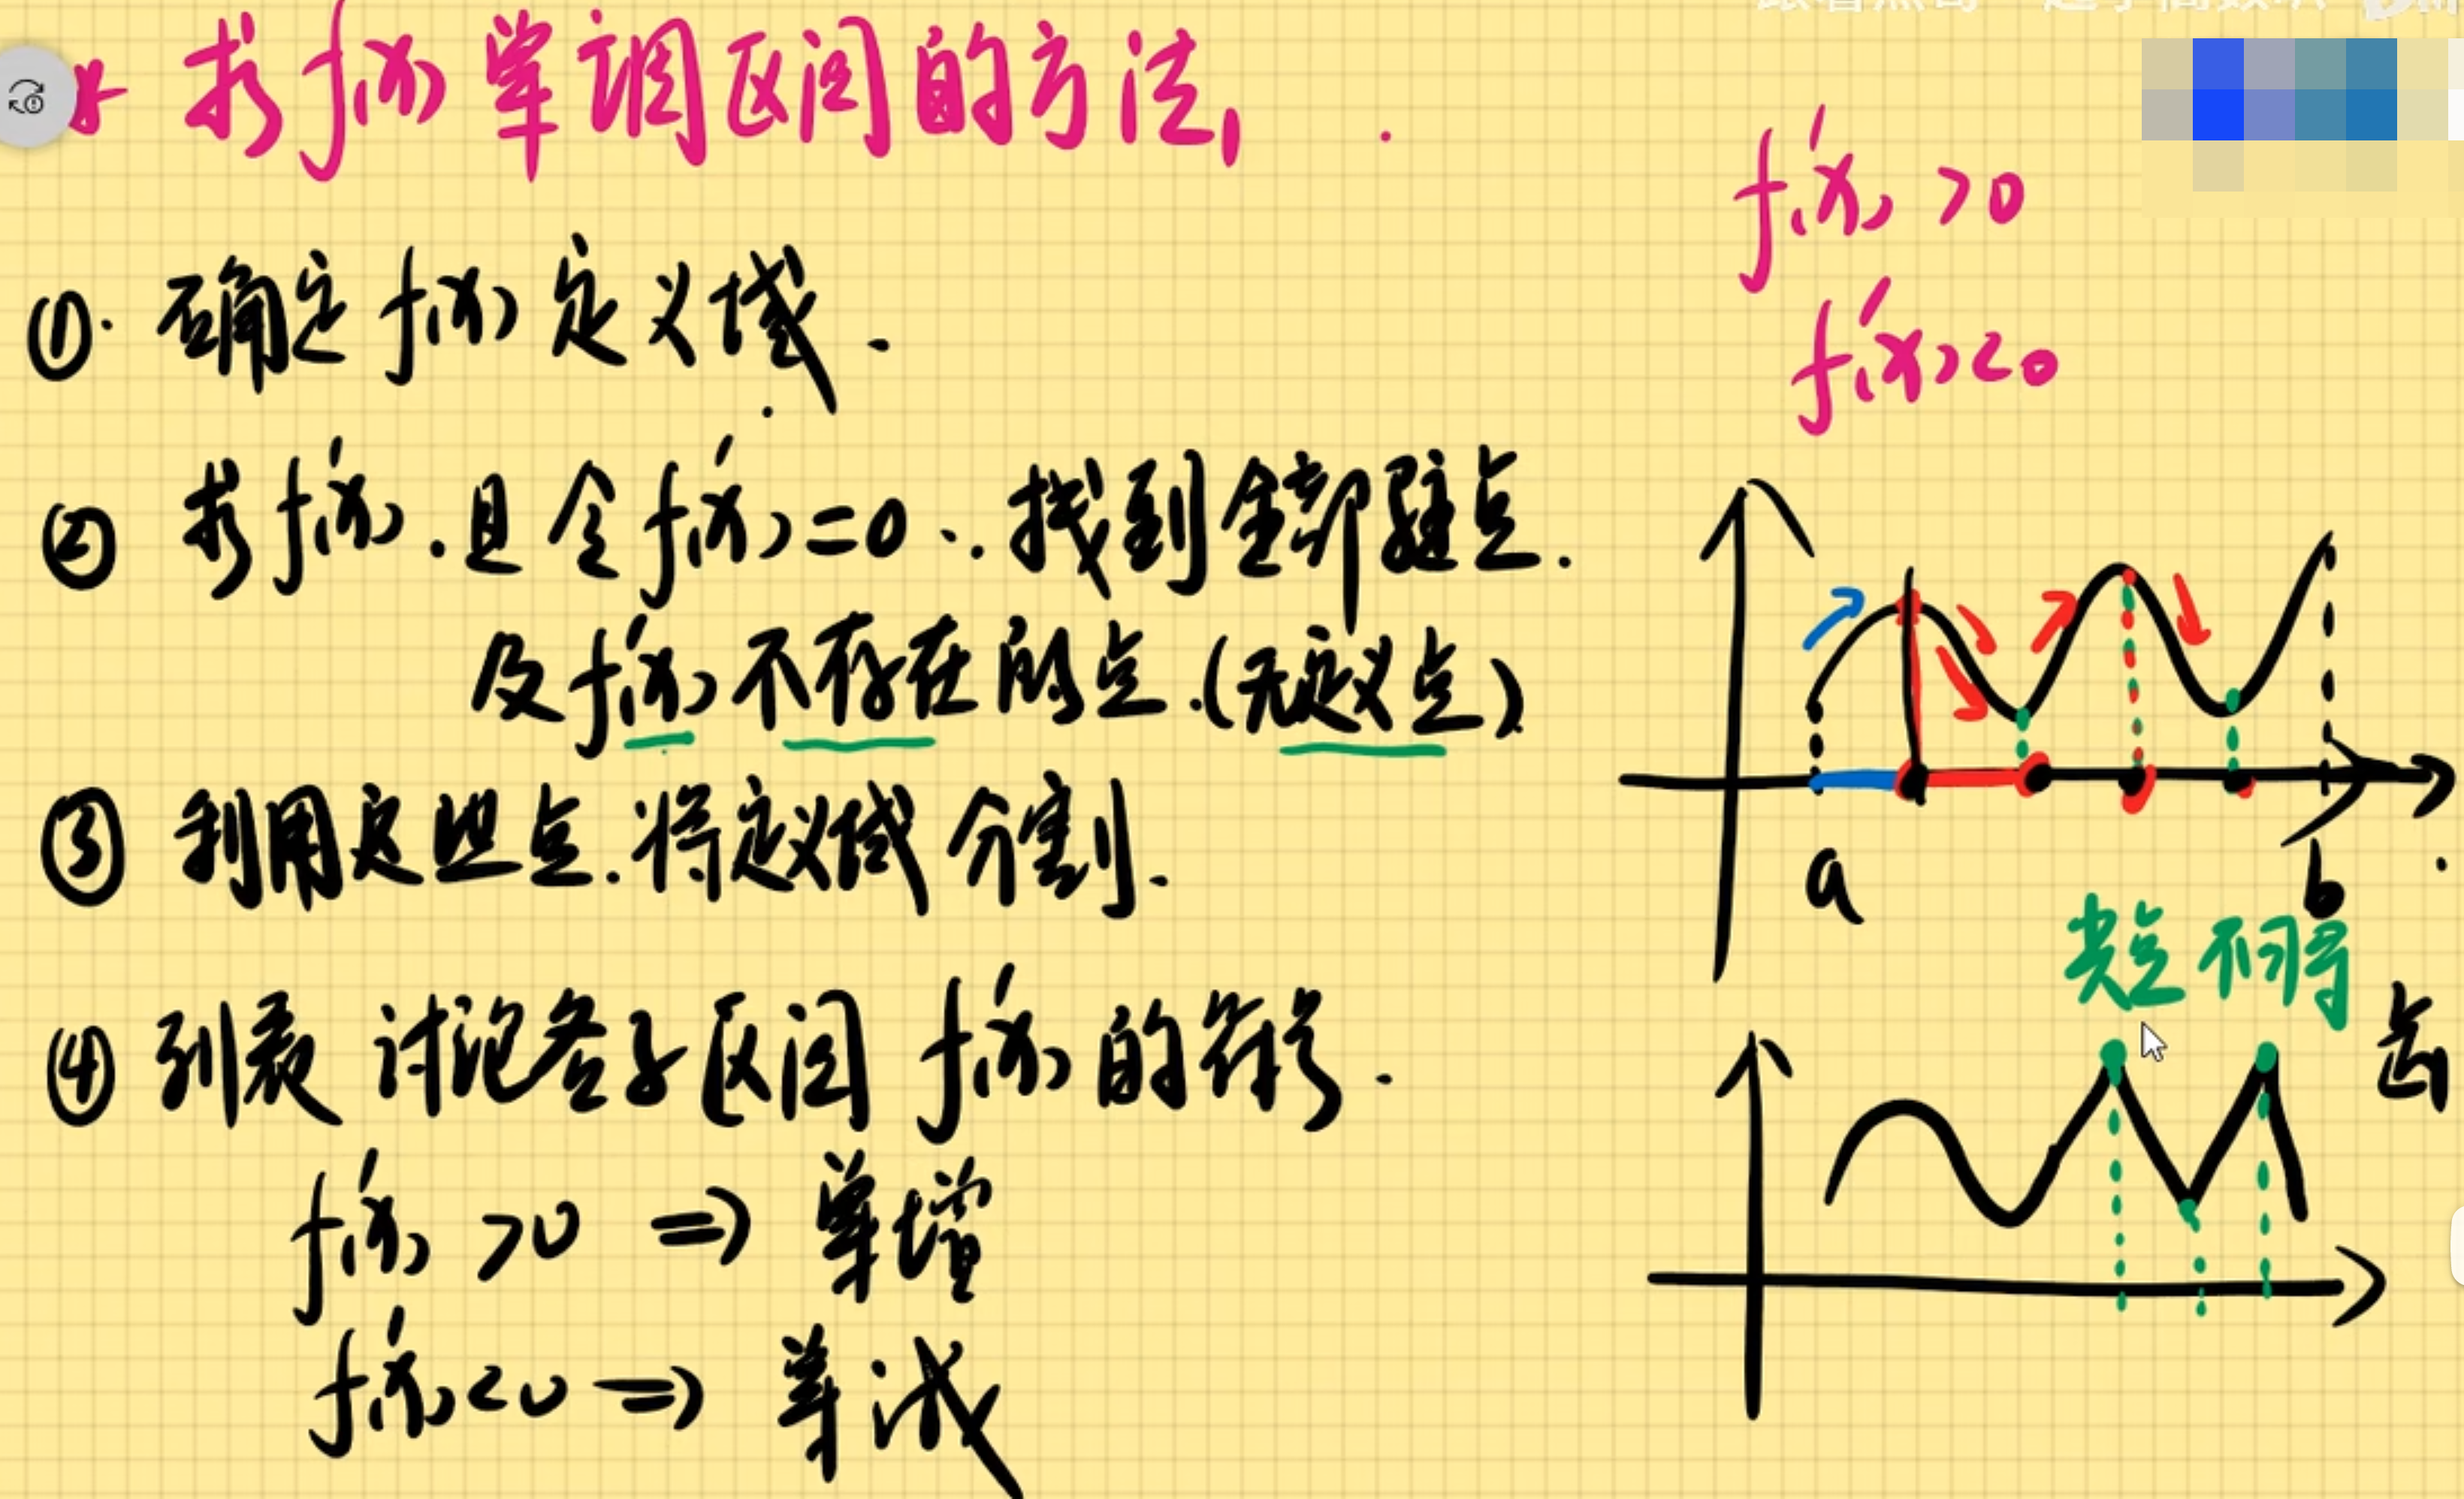 求f(x)单调区间的方法,
f'(x)>0
f'(x)<0
①. 确定f(x)定义域.
② 求f'(x).且令f'(x)=0.找到全部驻点.
及f'(x)不存在的点.(无定义点)
③ 利用这些点.将定义域分割.
④ 列表 讨论各子区间 f'(x)的符号.
f'(x)>0 ⇒ 单增
f'(x)<0 ⇒ 单减
a
b
尖点不可导